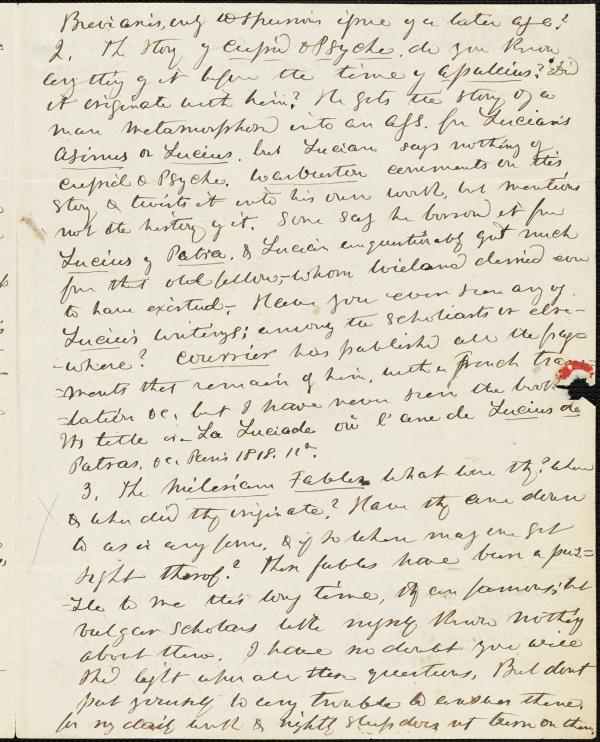 Breviaries, only & Spurious ipse of a later age?
2. The Story of Cupid & Psyche, do you Know
any thing of it before the time of Apuleius? Did
it originate with him? He gets the story of a
man metamorphosed into an ass, fm Lucian's
Asinus or Lucius, but Lucian says nothing of
Cupid & Psyche. Warburton comments on this
story & twists it into his own work, but mentions
not the history of it. Some say he borrowd it fm
Lucius of Patra, & Lucian unquestionably got much
fm this old fellow,-whom Wieland denied ever
to have existed-. Have you ever seen any of
Lucius writings; among the Scholiasts or else-
-where? Courrier has published all the frag-
-ments that remain of him, with a french trans-
-lation &c, but I have never seen the book
Its title is- La Luciade où l'ane de Lucius de
Patras, &c. Paris 1818. 12n.
3. The Milesian Fables what were thy? where
& when did thy originate? Have thy come down
to us in any form, & if so where may one get
sight therof? These fables have been a puz-
-zle to me this long time, thy are famous; but
vulgar scholars like myself know nothing
about them. I have no doubt you will
shed light upon all these questions, But dont
put yourself to any trouble to answer them,
for my daily work & nightly sleep does not turn on them.